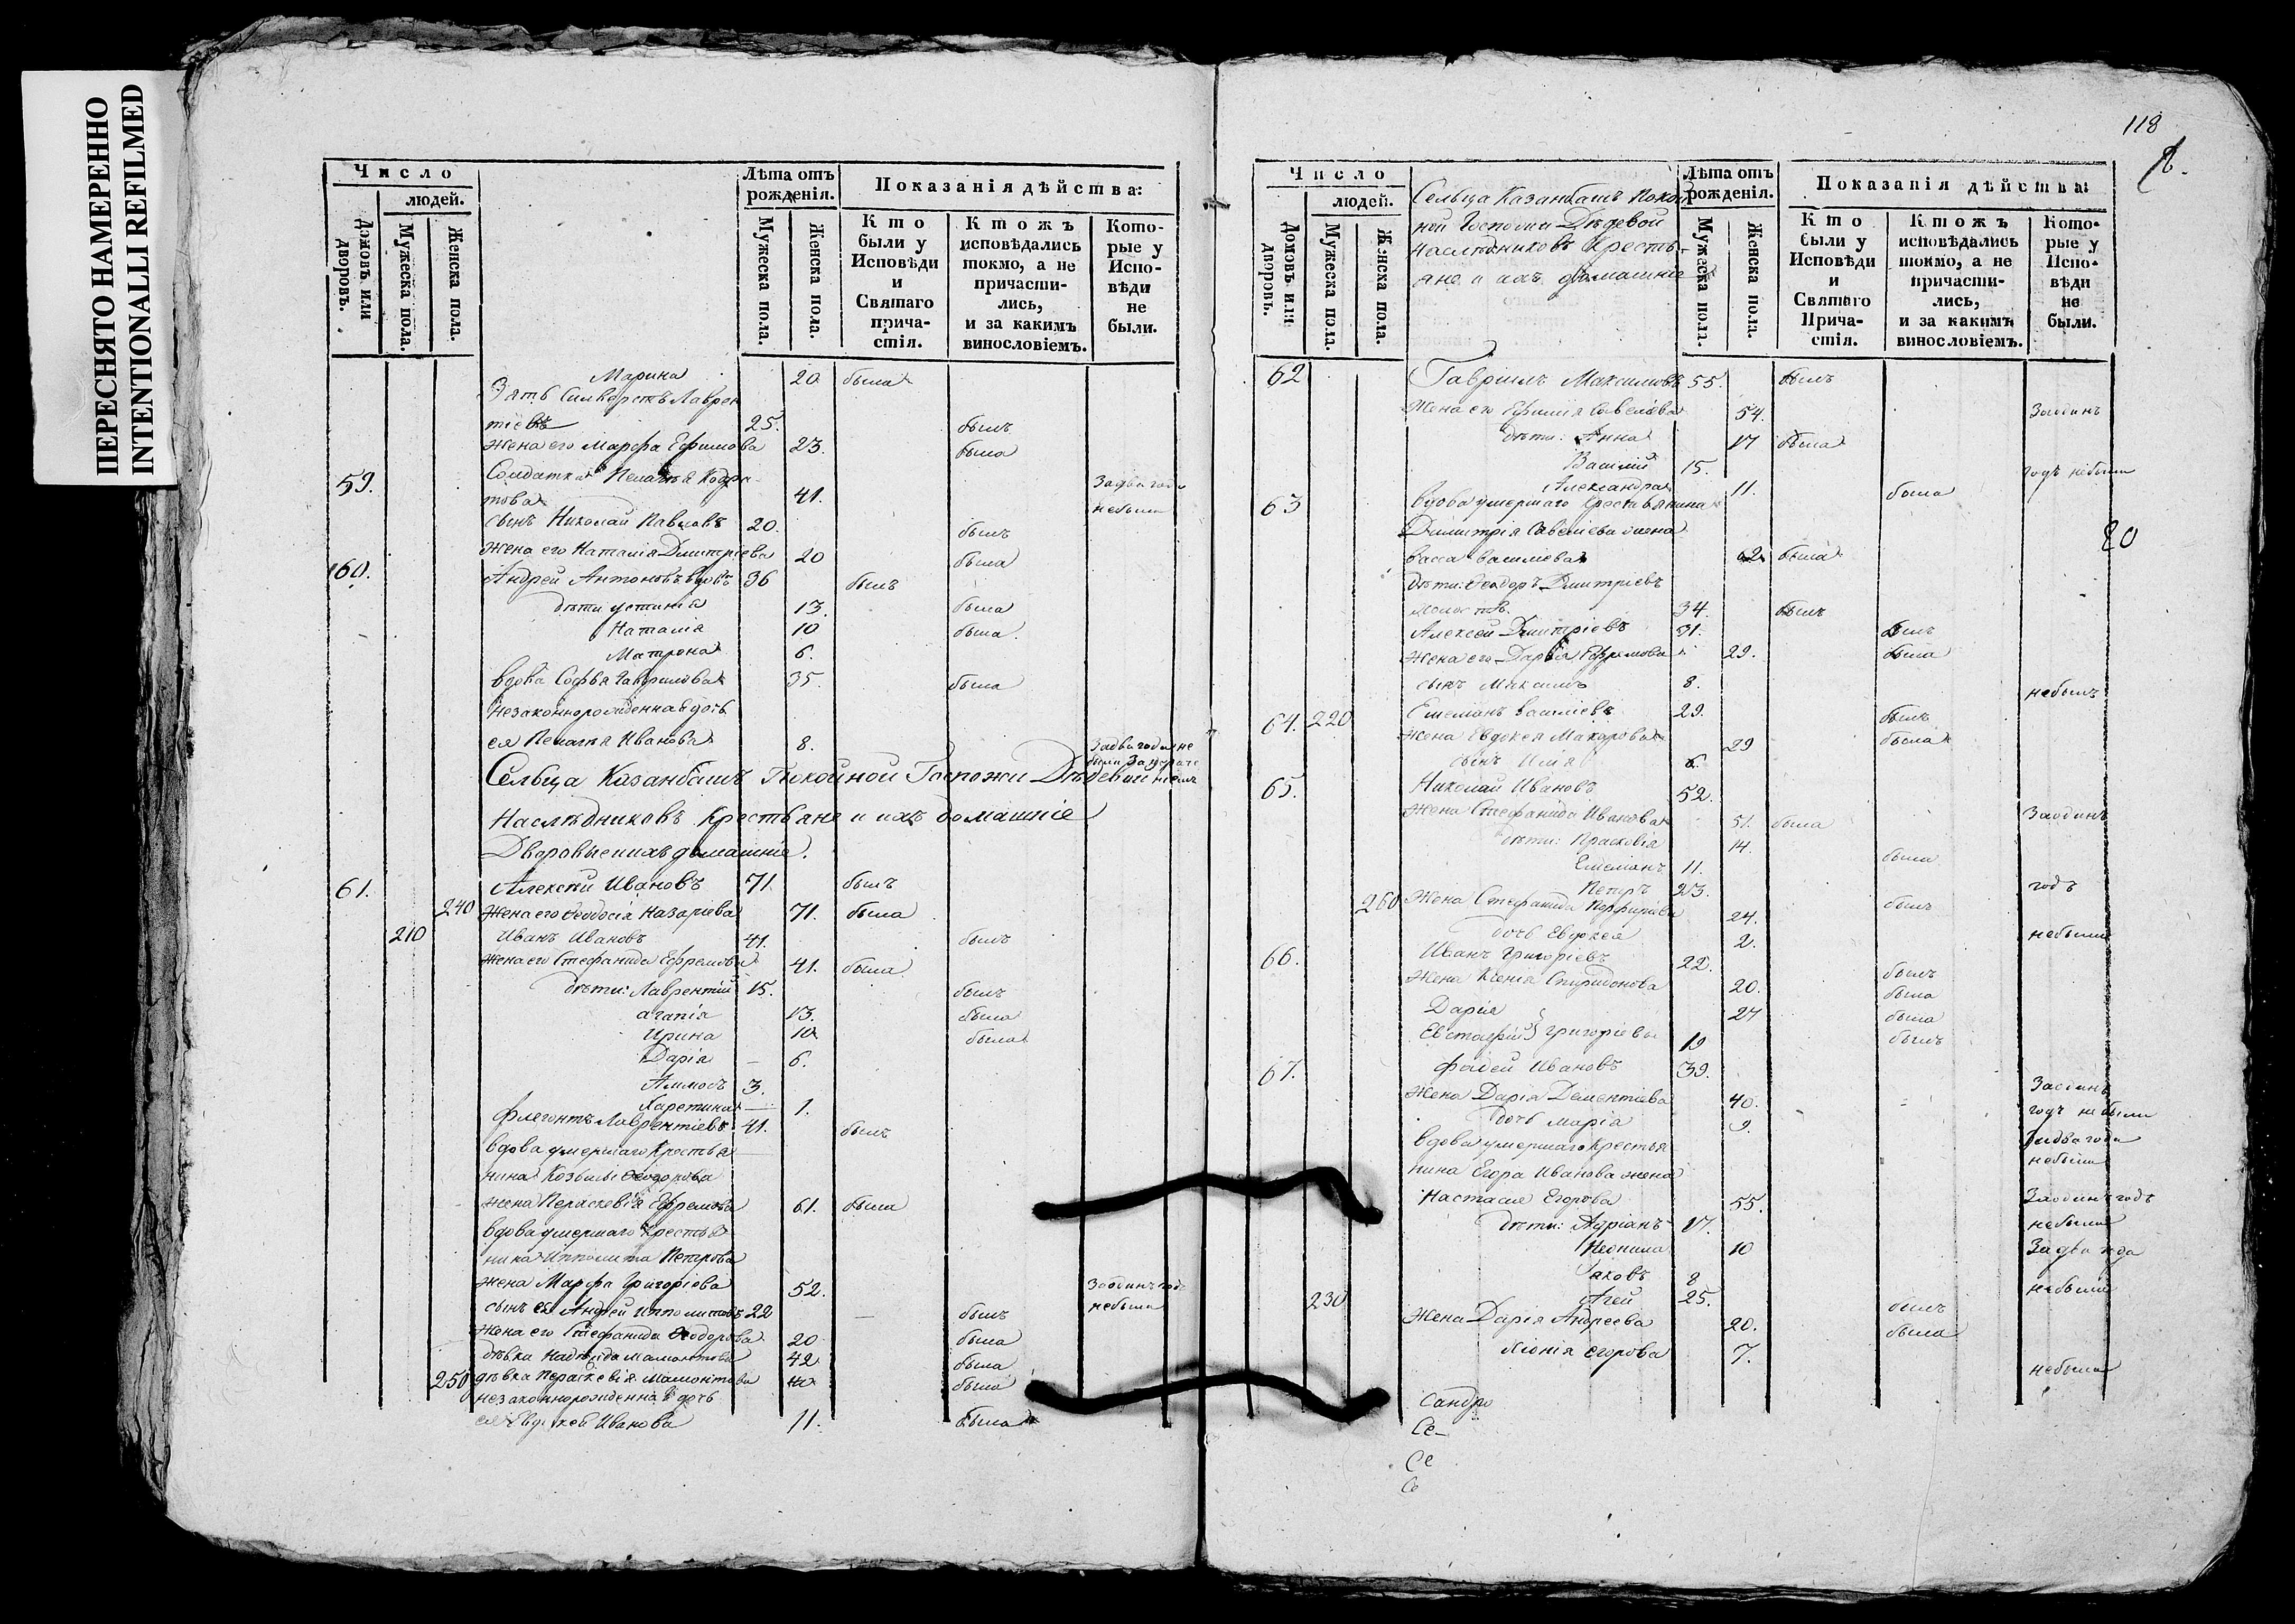 ПЕРЕСНЯТО НАМЕРЕННО
INTENTIONALLI REFILMED
Число
людей.
Домовъ или дворовъ.
Мужеска пола.
Женска пола.
Лѣта отъ рожденія.
Мужеска пола.
Женска пола.
Показанія дѣйства:
Кто были у Исповѣди и Святаго причастія.
Ктожъ исповѣдались токмо, а не причастились, и за какимъ винословіемъ.
Которые у Исповѣди не были.
Марина 20 была
Зять Силверстъ Лаврен
тіевъ 25. былъ
жена его Марфа Ефимова 23. была
59. Солдатка Пелагѣя Кодра За два года
това 41. небыла
сынъ Николай Павловъ 20. былъ
жена его Наталія Дмитріева 20 была
60. Андрей Антоновъ вдовъ 36 былъ
дѣти Устинія 13. была
Наталія 10 была.
Матрона 6.
вдова Софья Гаврилова 35. была
незаконнорожденная дочь
ея Пелагѣя Иванова 8. За два года не
Сельца Казанбашъ Покойной Госпожи Дѣдевой
Наслѣдниковъ Крестьяне и ихъ домашніе
Дворовые и ихъ домашніе.
61. Алексѣй Ивановъ 71. былъ
240 жена его Ѳеодосія Назаріева 71. была
210 Иванъ Ивановъ 41. былъ
жена его Стефанида Ефремова 41. была
дѣти: Лаврентій 15. былъ
Агапія 13. была
Ирина 10 была
Дарія — 6.
Аммосъ 3.
Харетина — 1.
Флегонтъ Лаврентіевъ 41. былъ
вдова умершаго Крестья
нина Козьмы Ѳеодорова
жена Параскевія Ефремова 61. была
вдова умершаго Крестья
нина Ипполита Петрова
жена Марфа Григоріева 52. За одинъ годъ
сынъ ея Андрей Ипполитовъ 22 — былъ небыла
жена его Стефанида Ѳеодорова 20 была
дѣвка Надежда Мамонтова 42 была
250 дѣвка Параскевія Мамонтова 40 была
незаконнорожденная дочь
ея Евдокея Иванова 11. была
118
Число
людей.
Домовъ или дворовъ.
Мужеска пола.
Женска пола.
Сельца Казанбашъ Покой
ной Госпожи Дѣдевой
Наслѣдниковъ Кресть-
яне и ихъ домашніе
Лѣта отъ рожденія.
Мужеска пола.
Женска пола.
Показанія дѣйства:
Кто были у Исповѣди и Святаго Причастія.
Ктожъ исповѣдались токмо, а не причастились, и за какимъ винословіемъ.
Которые у Исповѣди не были.
62 Гавріилъ Максимовъ 55. былъ
жена его Ефимія Савеліева 54. За одинъ
дѣти: Анна 17 была
Василій 15. годъ небыли
Александра 11. была
63 вдова умершаго Крестьянина
Димитрія Савеліева жена
васса василіева 62 была
20
дѣти: Ѳеодоръ Дмитріевъ
34. былъ
Алексѣй Дмитріевъ 31. былъ
жена его Дарія Ефремова 29. была
сынъ Максимъ 8. небылъ
64. 220 Емеліанъ Василіевъ 29. былъ
жена Евдокея Макарова 29 была
сынъ Илія 6.
65. Николай Ивановъ 52.
жена Стефанида Иванова 51. была За одинъ
дѣти: Прасковія 14. была
Емеліанъ 11.
Петръ 23. былъ годъ
260 жена Стефанида Порфирева 24.
дочь Евдокея 2. небыли
66. Иванъ Григоріевъ 22. былъ
жена Ксенія Спиридонова 20. была
Дарія 27 была
Евстафій } Григорьевы 19 былъ
67. Фадей Ивановъ 39.
жена Дарія Дементіева 40. За одинъ
дочь Марія 9. годъ небыли
вдова умершаго Крестья За два года
нина Егора Иванова жена небыли
Настасія Егорова 55. За одинъ годъ
дѣти: Адріанъ 17. небыли
Неонила 10 За два года
Іаковъ 8 небыли
230 Агей 25. былъ
жена Дарія Андреева 20. была
Хіонія Егорова 7. небыла
Сандро
Се-
Се
Се